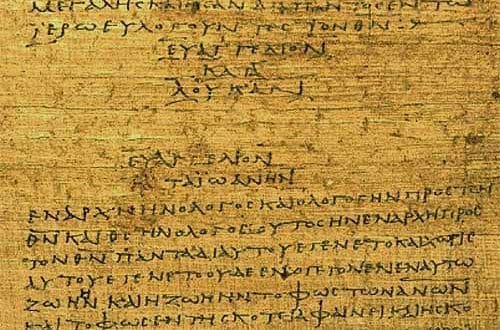 ΜΕΓΑΛΗϹΚΑΙΗϹΑΝΔΙΑΠΑΝΤΟϹΕΝΤΩ
ΙΕΡΩΕΥΛΟΓΟΥΝΤΕϹΤΟΝΘΝ
ΕΥΑΓΓΕΛΙΟΝ
ΚΑΤΑ
ΛΟΥΚΑΝ
ΕΥΑΓΓΕΛΙΟΝ
ΙΩΑΝΗΝ
ΕΝΑΡΧΗΗΝΟΛΟΓΟϹΚΑΙΟΛΟΓΟϹΗΝΠΡΟϹΤΟΝ
ΘΝΚΑΙΘϹΗΝΟΛΟΓΟϹΟΥΤΟϹΗΝΕΝΑΡΧΗΠΡΟϹ
ΤΟΝΘΝΠΑΝΤΑΔΙΑΥΤΟΥΕΓΕΝΕΤΟΚΑΙΧΩΡΙϹ
ΑΥΤΟΥΕΓΕΝΕΤΟΟΥΔΕΕΝΟΓΕΓΟΝΕΝΕΝΑΥΤΩ
ΖΩΗΗΝΚΑΙΗΖΩΗΗΝΤΟΦΩϹΤΩΝΑΝΩΝ
ΚΑΙΤΟΦΩϹΕΝΤΗϹΚΟΤΙΑΦΑΙΝΕΙΚΑΙΗϹΚΟ